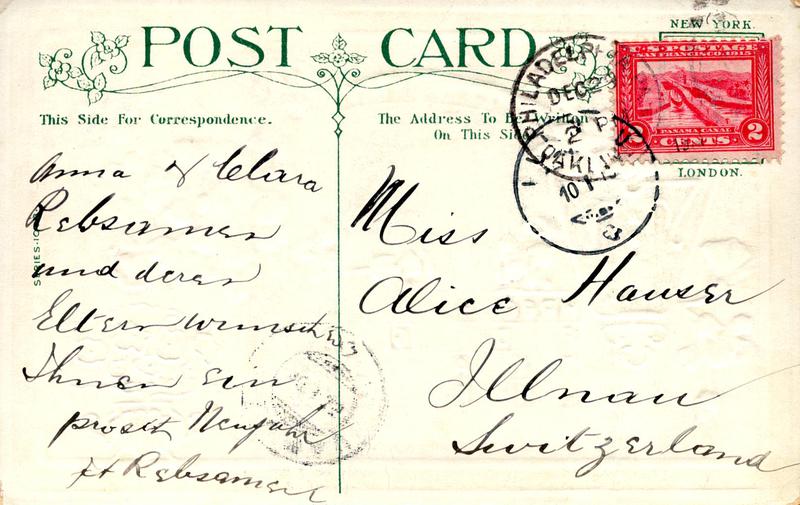 POST CARD
NEW YORK.
LONDON.
This Side For Correspondence.
The Address To Be Written
On This Side
SERIES
U.S. POSTAGE
SAN FRANCISCO, 1915
PANAMA CANAL
2 CENTS 2
PHILADELPHIA
DEC
2 P
10 1
Anna & Clara
Rebsamen
und deren
Eltern wünscht
Ihnen ein
prosit Neujahr
Rebsamen
Miss
Alice Hauser
Illnau
Switzerland